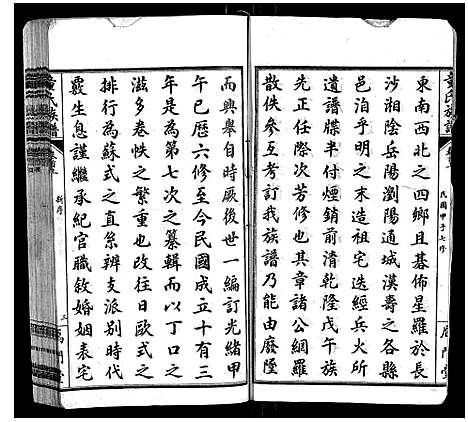 東南西北之四鄉且碁佈星羅於長
沙湘陰岳陽瀏陽通城漢壽之各縣
邑洎乎明之末造祖宅迭經兵火所
遺譜牒半付煙銷前清乾隆戊午族
先正任際次芳修也其章諸公網羅
散佚參互考訂我族譜乃能由廢墜
民國甲子七修
而興舉自時厥後世一編訂光緒甲
午已歷六修至今民國成立十有三
年是為第七次之纂輯而以丁口之
滋多卷帙之繁重也改往日歐式之
排行為蘇式之直系辨支派別時代
覈生息謹繼承紀官職敘婚姻表宅
新序
三